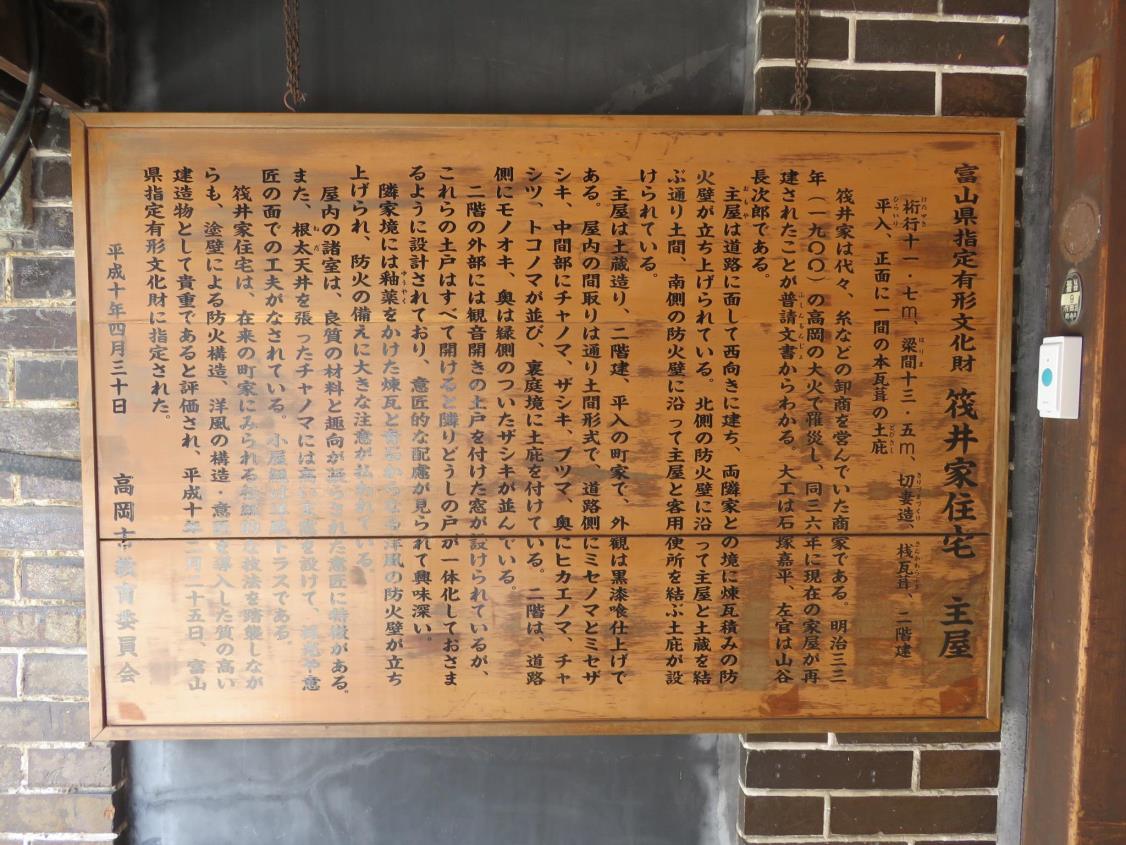 富山県指定有形文化財 筏井家住宅 主屋
桁行十一・七m、梁間十三・五m、切妻造、桟瓦葺、二階建
平入、正面に一間の本瓦葺の土庇
筏井家は代々、糸などの卸商を営んでいた商家である。明治三三
年（一九〇〇）の高岡の大火で罹災し、同三六年に現在の家屋が再
建されたことが普請文書からわかる。大工は石塚嘉平、左官は山谷
長次郎である。
主屋は道路に面して西向きに建ち、両隣家との境に煉瓦積みの防
火壁が立ち上げられている。北側の防火壁に沿って主屋と土蔵を結
ぶ通り土間、南側の防火壁に沿って主屋と客用便所を結ぶ土庇が設
けられている。
主屋は土蔵造り、二階建、平入の町家で、外観は黒漆喰仕上げで
ある。屋内の間取りは通り土間形式で、道路側にミセノマとミセザ
シキ、中間部にチャノマ、ザシキ、ブツマ、奥にヒカエノマ、チャ
シツ、トコノマが並び、裏庭境に土庇を付けている。二階は、道路
側にモノオキ、奥は縁側のついたザシキが並んでいる。
二階の外部には観音開きの土戸を付けた窓が設けられているが、
これらの土戸はすべて開けると隣りどうしの戸が一体化しておさま
るように設計されており、意匠的な配慮が見られて興味深い。
隣家境には釉薬をかけた煉瓦と からなる洋風の防火壁が立ち
上げられ、防火の備えに大きな注意が払われている。
屋内の諸室は、良質の材料と趣向が凝らされた意匠に特徴がある。
また、根太天井を張ったチャノマには を設けて、 や意
匠の面での工夫がなされている。小屋組は洋風トラスである。
筏井家住宅は、在来の町家にみられる伝統的な技法を踏襲しなが
らも、塗壁による防火構造、洋風の構造・意匠を導入した質の高い
建造物として貴重であると評価され、平成十年二月二十五日、富山
県指定有形文化財に指定された。
平成十年四月三十日 高岡市教育委員会